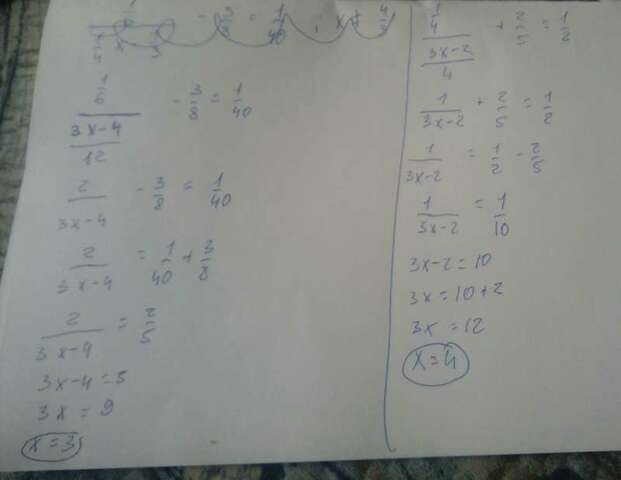 1/6 / (x/4 - 1/3) - 3/8 = 1/40, x ≠ 4/3
1/6 / ((3x-4)/12) - 3/8 = 1/40
2/(3x-4) - 3/8 = 1/40
2/(3x-4) = 1/40 + 3/8
2/(3x-4) = 2/5
3x-4=5
3x = 9
x=3
1/4 / ((3x-2)/4) + 2/5 = 1/2
1/(3x-2) + 2/5 = 1/2
1/(3x-2) = 1/2 - 2/5
1/(3x-2) = 1/10
3x-2=10
3x=10+2
3x=12
x=4